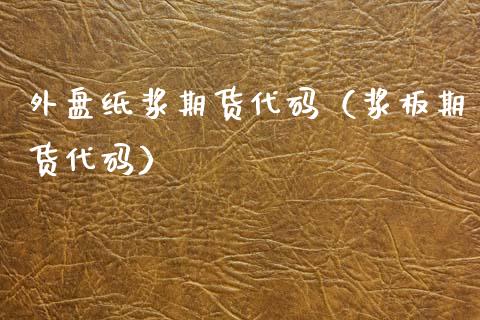 外盘纸浆期货代码（浆板期
货代码）